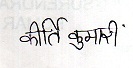 कीर्ति कुमारी